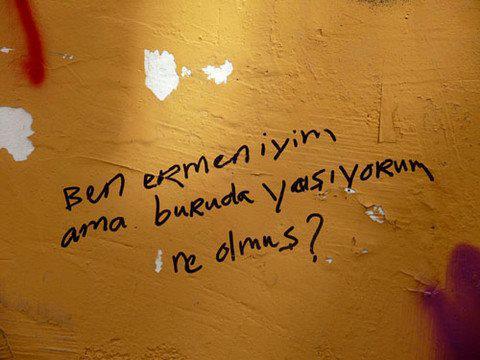 Ben ermeniyim
ama buruda yaşıyorum
ne olmuş?